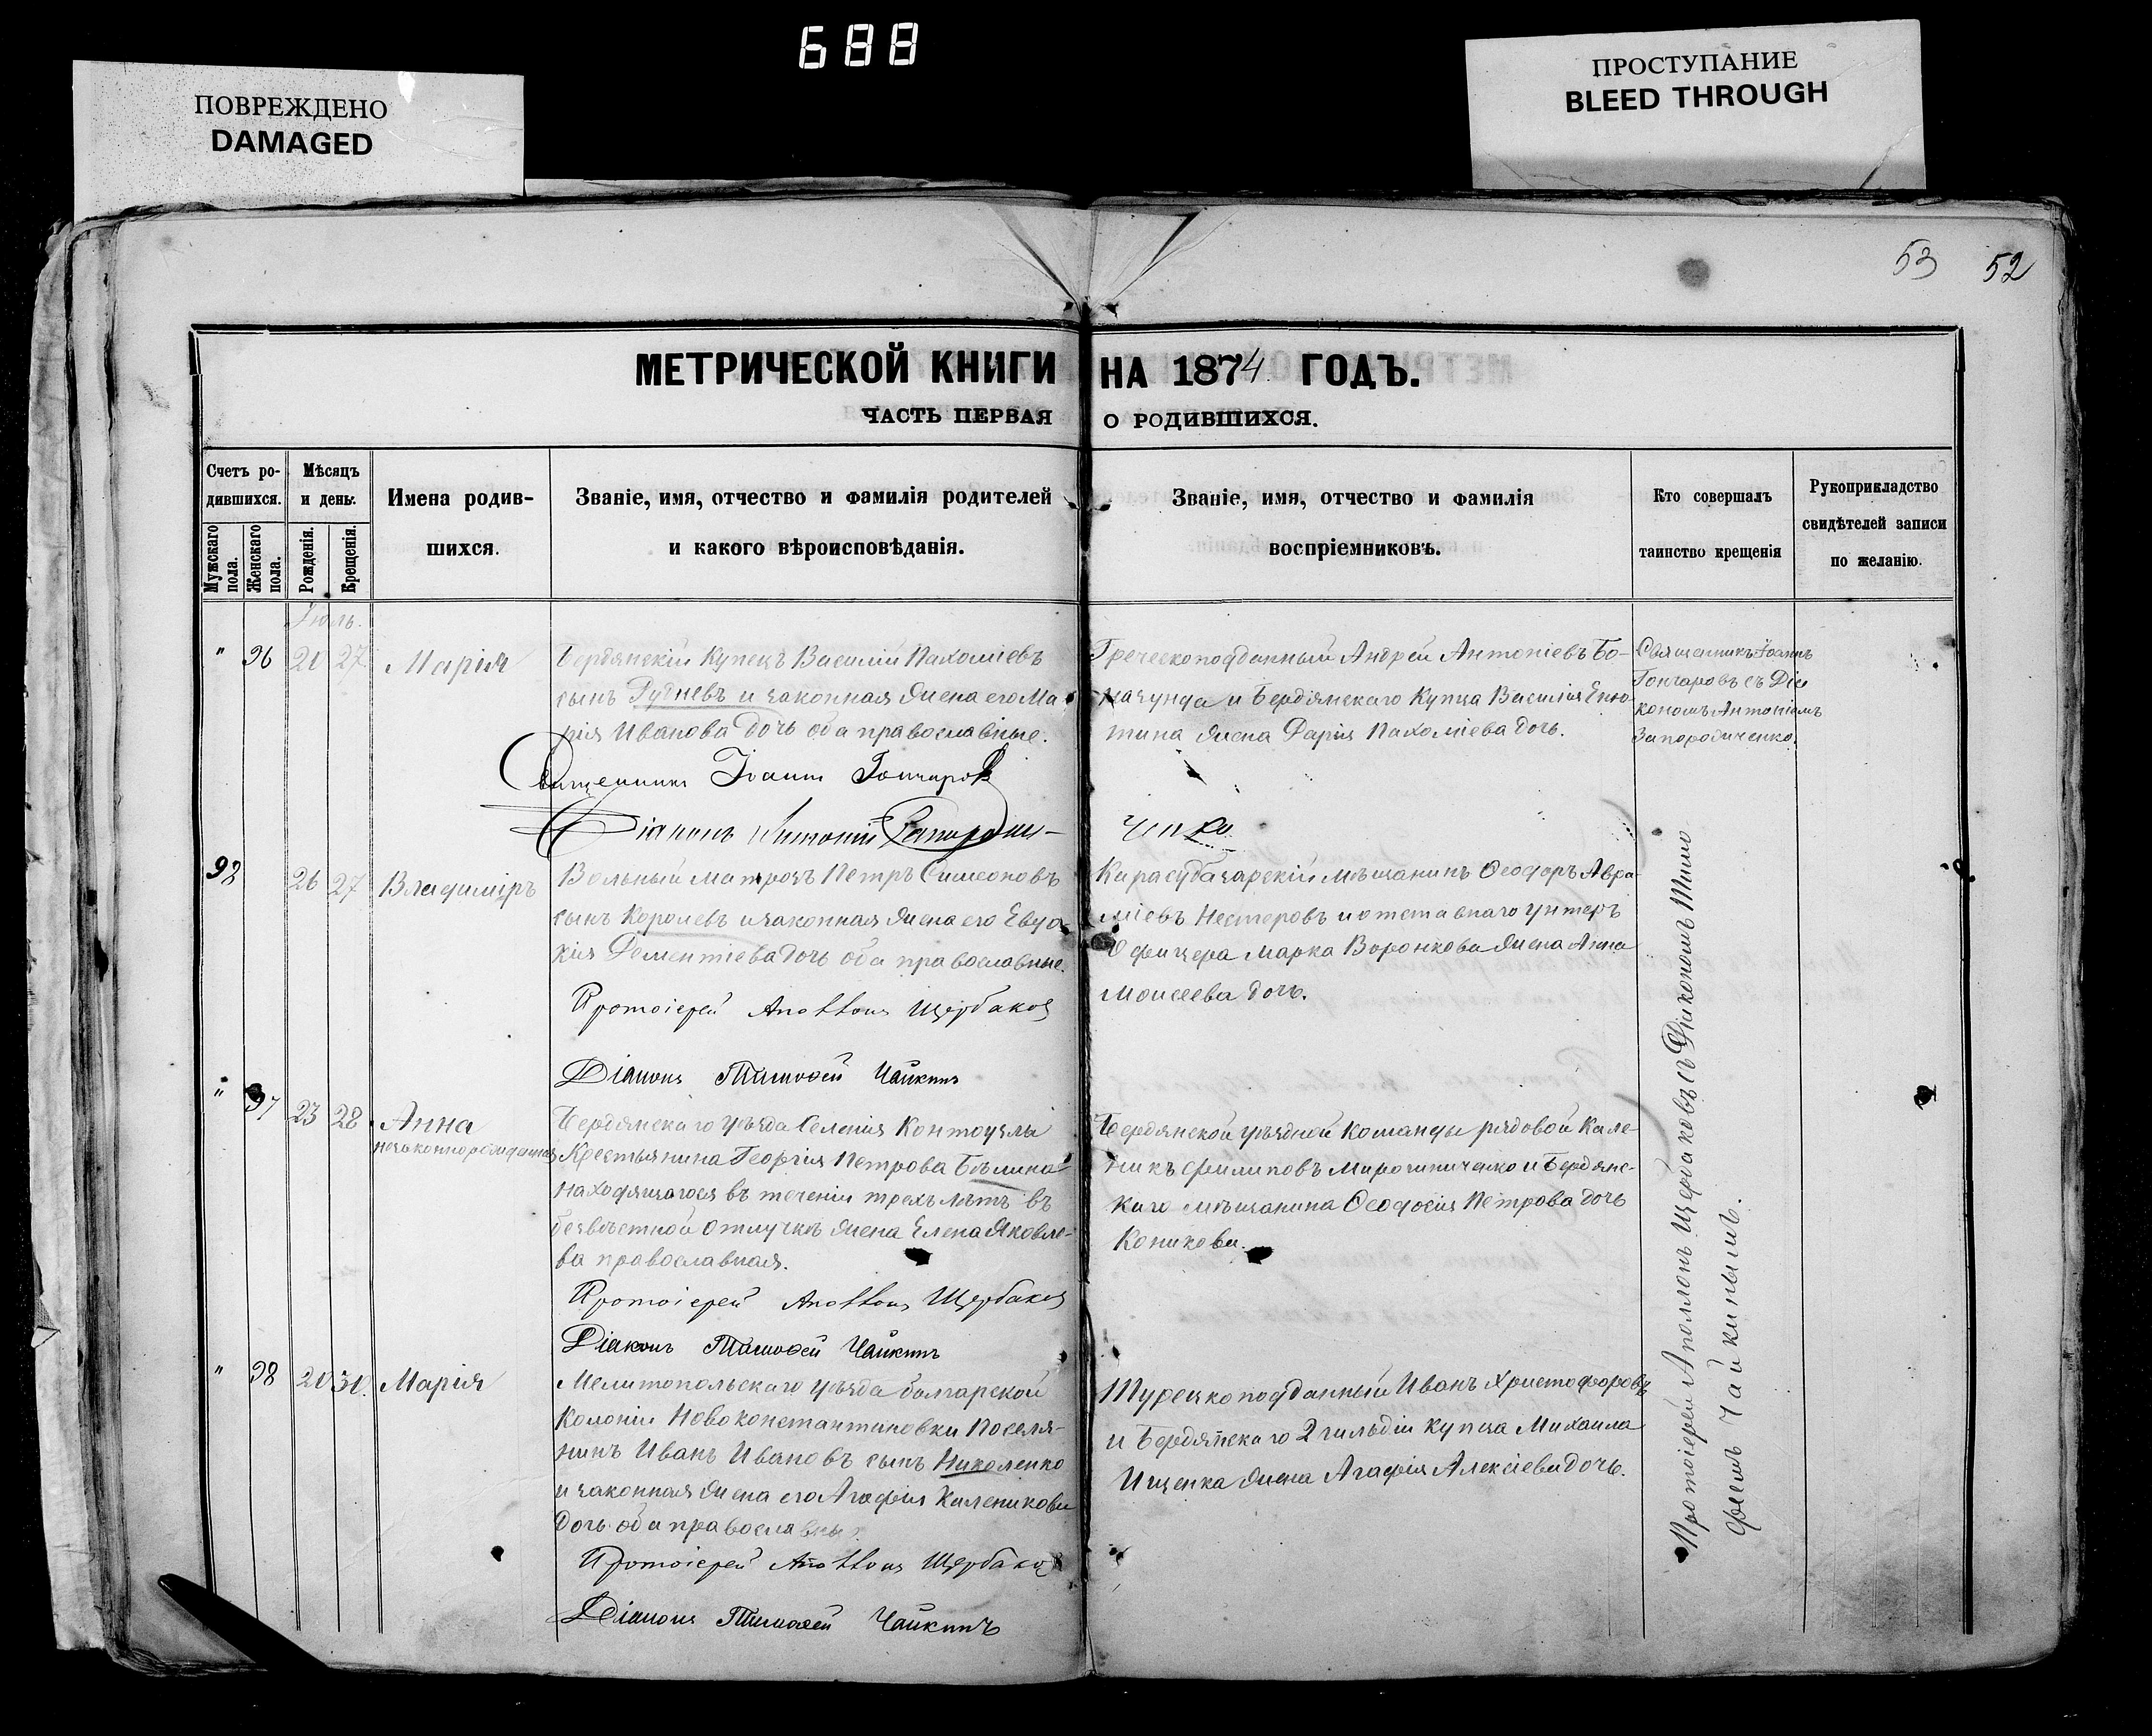 688
ПОВРЕЖДЕНО
DAMAGED
ПРОСТУПАНИЕ
BLEED THROUGH
53 52
МЕТРИЧЕСКОЙ КНИГИ НА 1874 ГОДЪ.
ЧАСТЬ ПЕРВАЯ О РОДИВШИХСЯ.
Счетъ ро-
дившихся.
Мужскаго пола.
Женскаго пола.
Мѣсяцъ
и день.
Рожденія.
Крещенія.
Имена родив-
шихся.
Званіе, имя, отчество и фамилія родителей
и какого вѣроисповѣданія.
Званіе, имя, отчество и фамилія
воспріемниковъ.
Кто совершалъ
таинство крещенія
Рукоприкладство
свидѣтелей записи
по желанію.
Іюль.
" 96 20 27 Марія
Бердянскій Купецъ Василій Пахоміевъ
сынъ Рудневъ и законная жена его Ма-
рія Иванова дочь оба православные.
Греческоподданный Андрей Антоніевъ Бо-
и Бердянскаго Купца Василія
тина жена Дарія Пахоміева дочь.
Священникъ Іоаннъ
Гончаровъ съ Діа
кономъ Антоніемъ
Запорожченко.
Священникъ Іоаннъ Гончаровъ
Діаконъ Антоній Запорож-
ченко
92 26 27 Владиміръ
Вольный матрозъ Петръ Симеоновъ
сынъ Королевъ и законная жена его Евдо-
кія Дементіева дочь оба православные.
Карасубазарскій мѣщанинъ Ѳеодоръ Авра-
міевъ Нестеровъ и отставнаго унтеръ
Офицера Марка Воронкова жена Анна
Моисеева дочь.
Протоіерей Аполлонъ Щербаковъ
Діаконъ Тимоѳей Чайкинъ
" 97 23 28 Анна
незаконнорожденная
Бердянскаго уѣзда Селенія
Крестьянина Георгія Петрова Бѣлина
находящагося въ теченіи трехъ лѣтъ въ
безвѣстной отлучкѣ жена Елена Яковле-
ва православная.
Бердянской уѣздной Команды рядовой Кале-
никъ Филиповъ Мирошниченко и Бердянс-
каго мѣщанина Ѳеодосія Петрова дочь
Коникова.
Протоіерей Аполлонъ Щербаковъ
Діаконъ Тимоѳей Чайкинъ
" 98 20 30. Марія
Мелитопольскаго уѣзда болгарской
Колоніи Новоконстантиновки Поселя-
нинъ Иванъ Ивановъ сынъ Николенко
и законная жена его Агафія Каленикова
дочь оба православны
Турецкоподданный Иванъ Христофоровъ
и Бердянскаго 2 гильдіи купца Михаила
Ищенка жена Агафія Алексіева дочь.
Протоіерей Аполлонъ Щербаковъ
Діаконъ Тимоѳей Чайкинъ
Протоіерей Аполлонъ Щербаковъ съ Діакономъ Тимо
феемъ Чайкинымъ.